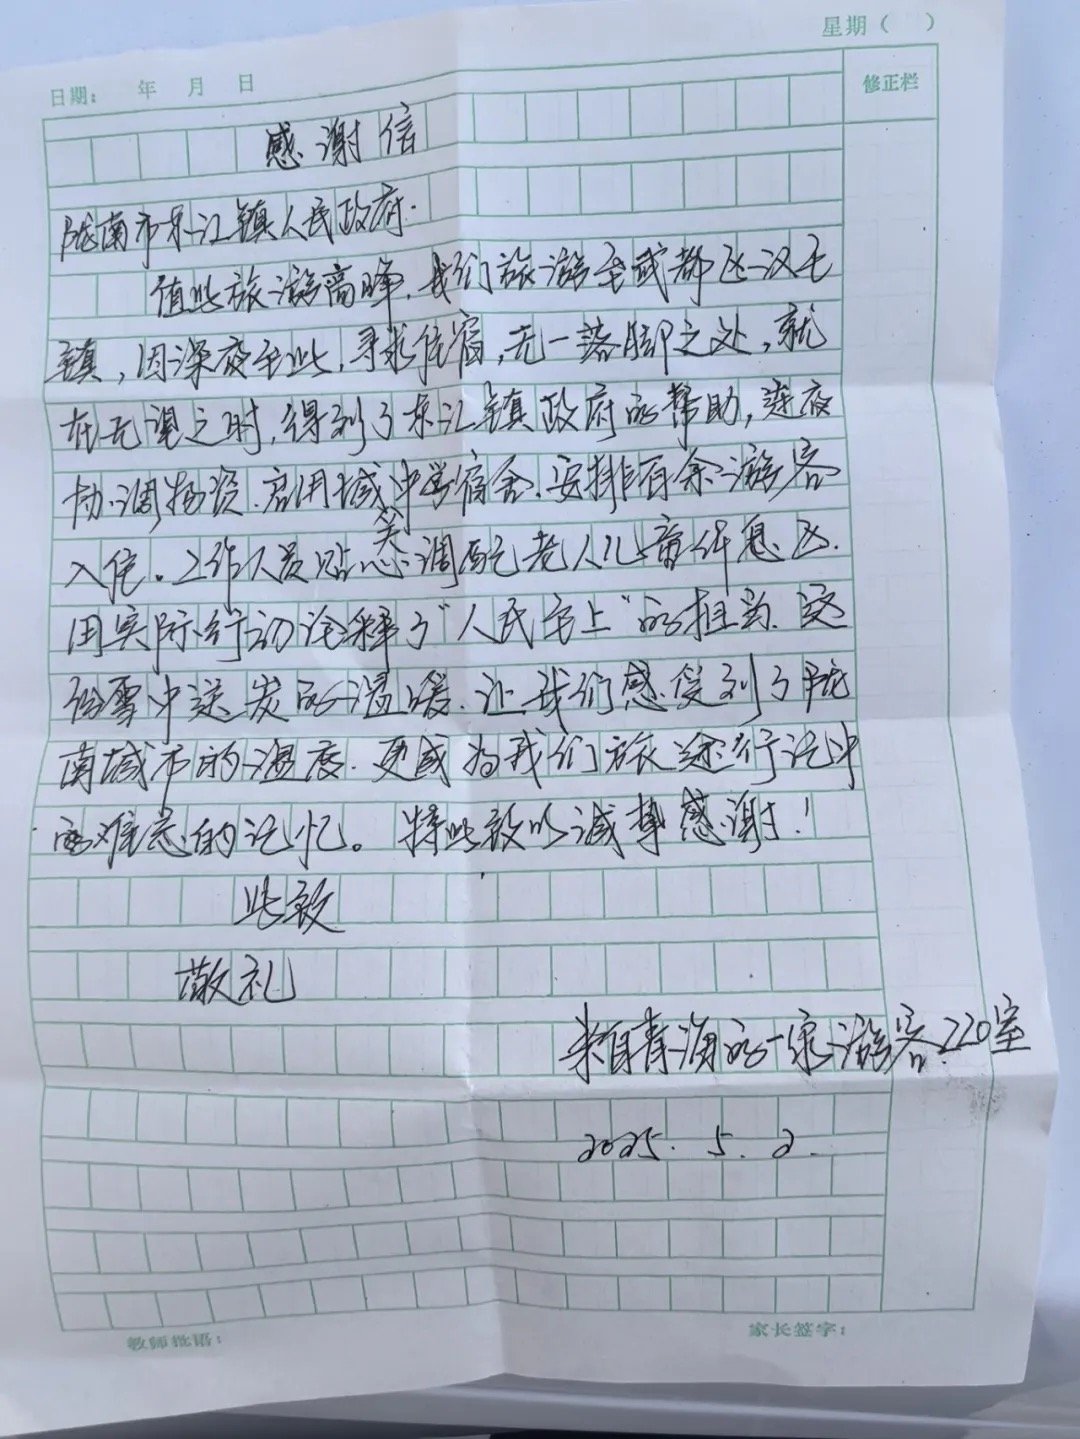 星期（ ）
日期： 年 月 日
修正栏
感谢信
陇南市东江镇人民政府.
值此旅游高峰,我们旅游至武都区汉王
镇,因深夜至此,寻求住宿,无一落脚之处,就
在无望之时,得到了东江镇政府的帮助,连夜
协调物资.启用城中学宿舍.安排百余游客
入住。工作人员贴心调配老人儿童休息区.
用实际行动诠释了"人民至上"的担当.这
份雪中送炭的温暖.让我们感受到了陇
南城市的温度.更成为我们旅途行记中
难忘的记忆。特此致以诚挚感谢!
此致
敬礼
来自青海的一家游客.220室
2025.5.2.
教师批语：
家长签字：